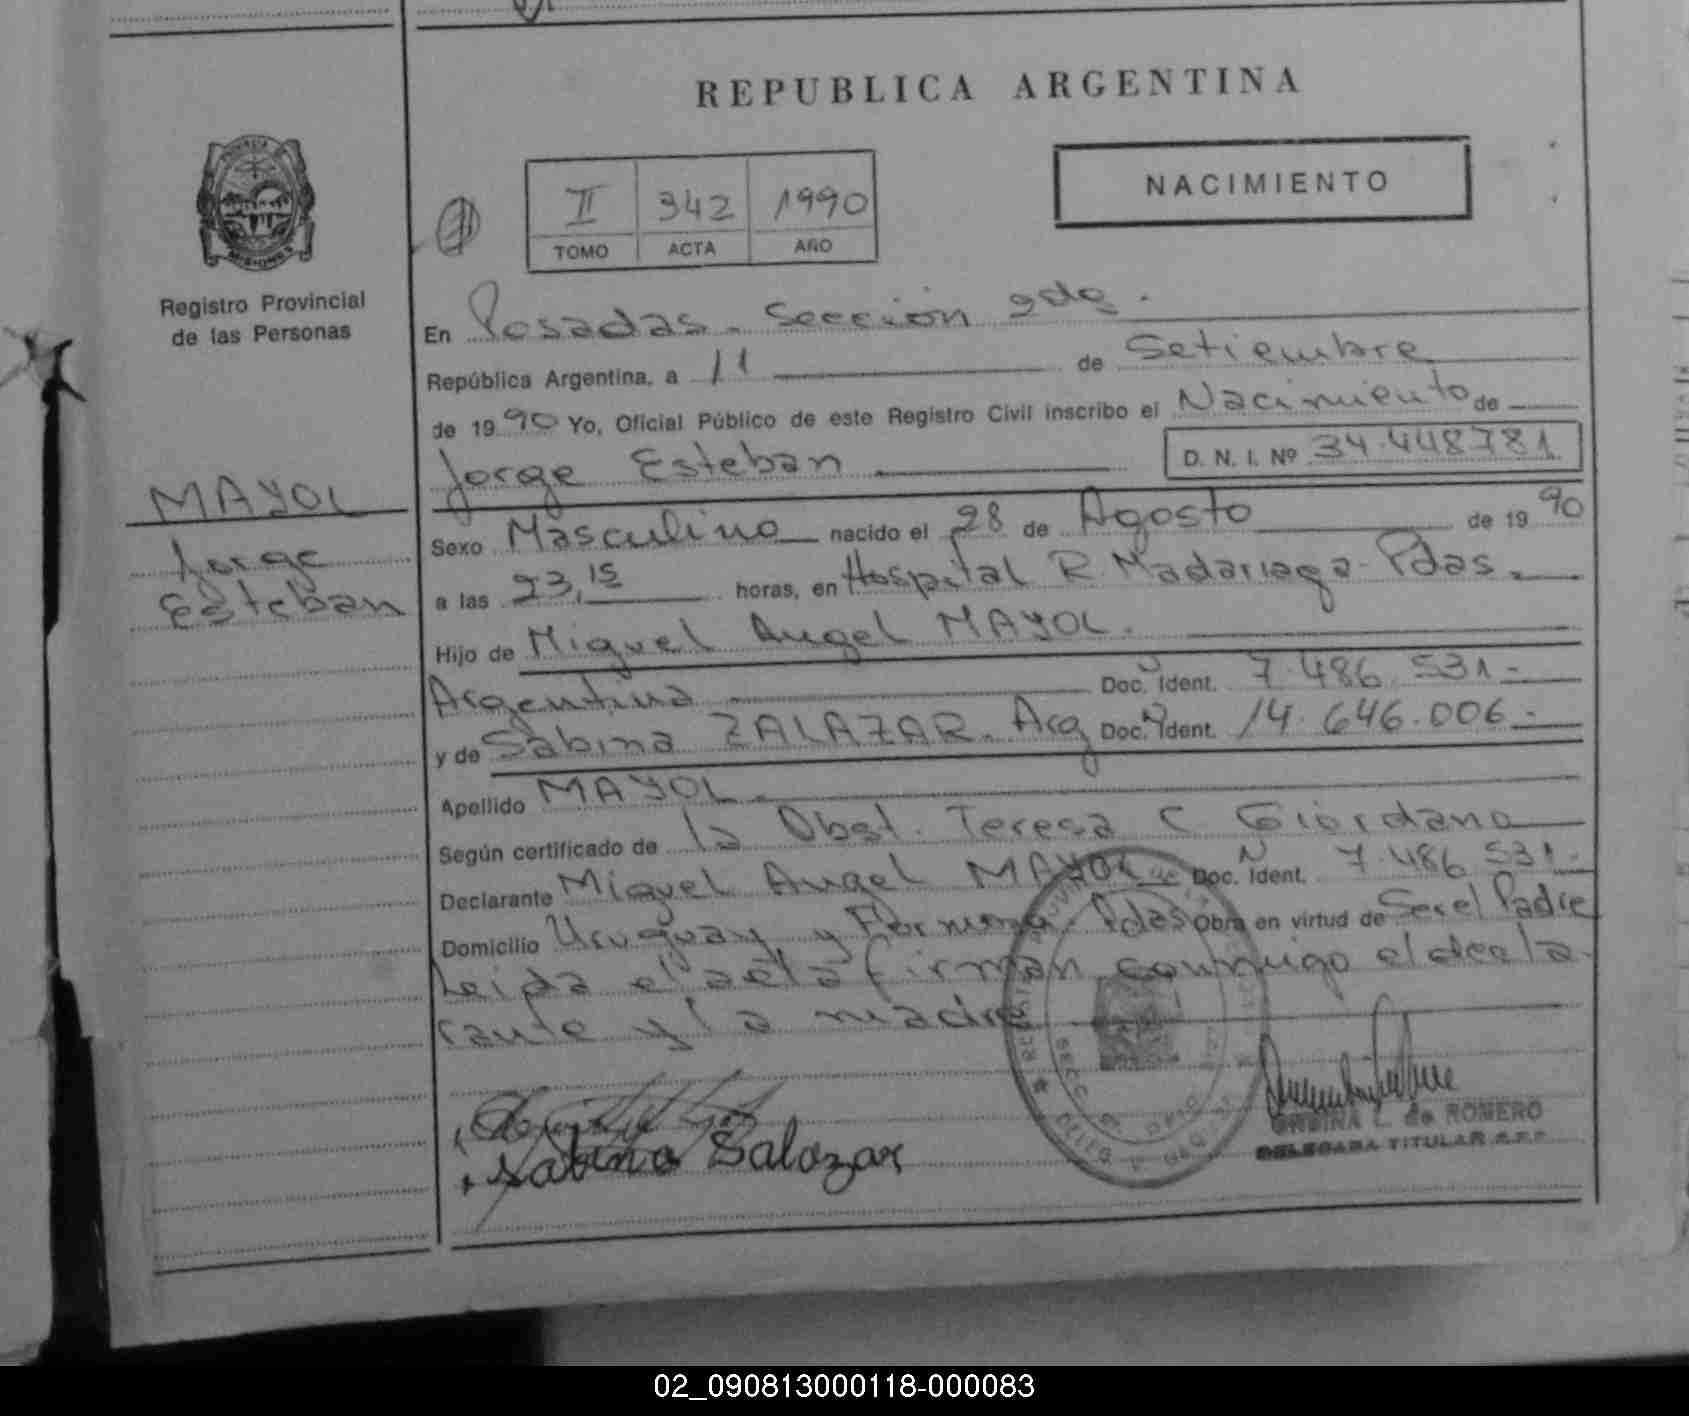 REPUBLICA ARGENTINA
NACIMIENTO
II 342 1990
TOMO ACTA AÑO
PROVINCIA
MISIONES
Registro Provincial
de las Personas
MAYOL
Jorge
Esteban
En Posadas - Sección 2da.
República Argentina, a 11 de Setiembre
de 1990 Yo, Oficial Público de este Registro Civil inscribo el Nacimiento de
Jorge Esteban D. N. I. Nº 34.448781
Sexo Masculino nacido el 28 de Agosto de 1990
a las 23,15 horas, en Hospital R. Madariaga - Pdas.
Hijo de Miguel Angel MAYOL.
Argentina Doc. Ident. 7.486.531.-
y de Sabina ZALAZAR. Arg Doc. Ident. 14.646.006.-
Apellido MAYOL.
Según certificado de la Obst. Teresa C Giordano
Declarante Miguel Angel MAYOL Doc. Ident. 7.486.531.-
Domicilio Uruguay y Pdas Obra en virtud de Ser el Padre
Leida el acta firman conmigo el decla
rante y la madre
Sabina Salazar
L. de ROMERO
DELEGADA TITULAR
02_090813000118-000083